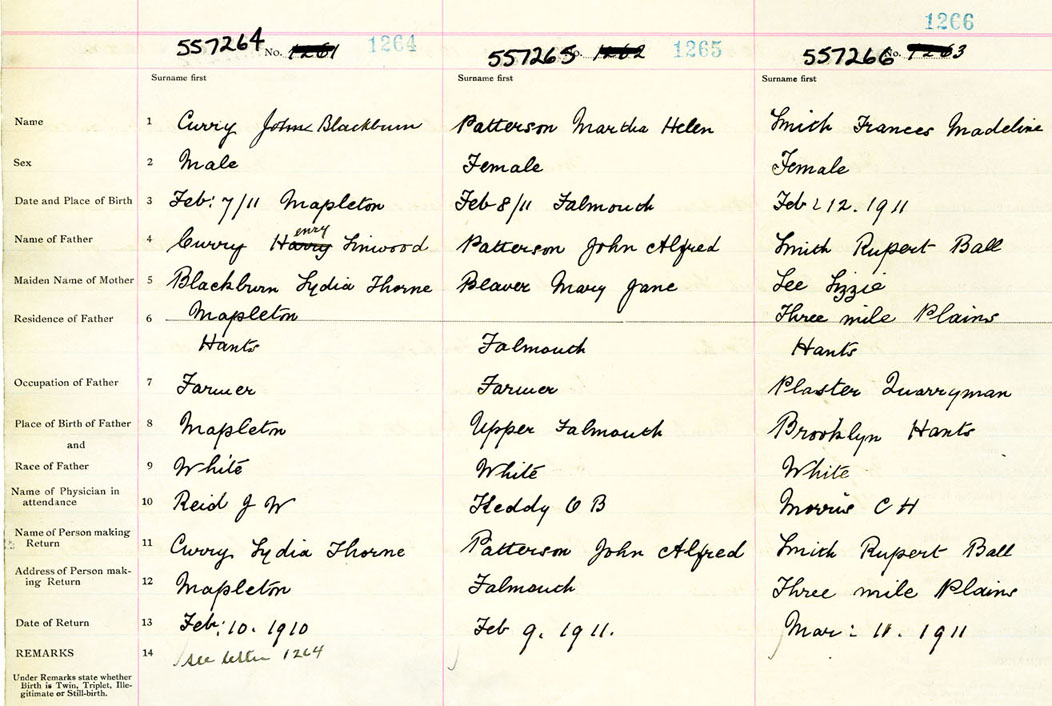 1266
557264 No. 1261 1264 557265 No. 1262 1265 557266 No. 1263
Surname first Surname first Surname first
Name 1 Curry John Blackburn Patterson Martha Helen Smith Frances Madeline
Sex 2 Male Female Female
Date and Place of Birth 3 Feb: 7/11 Mapleton Feb 8/11 Falmouth Feb: 12. 1911
enry
Name of Father 4 Curry Harry Linwood Patterson John Alfred Smith Rupert Ball
Maiden Name of Mother 5 Blackburn Lydia Thorne Beaver Mary Jane Lee Lizzie
Residence of Father 6 Mapleton Three mile Plains
Hants Falmouth Hants
Occupation of Father 7 Farmer Farmer Plaster Quarryman
Place of Birth of Father 8 Mapleton Upper Falmouth Brooklyn Hants
and
Race of Father 9 White White White
Name of Physician in
attendance 10 Reid J W Keddy O B Morris C H
Name of Person making
Return 11 Curry, Lydia Thorne Patterson John Alfred Smith Rupert Ball
Address of Person mak-
ing Return 12 Mapleton Falmouth Three mile Plains
Date of Return 13 Feb: 10. 1910 Feb 9. 1911. Mar: 11. 1911
REMARKS 14 see letter 1264
Under Remarks state whether
Birth is Twin, Triplet, Ille-
gitimate or Still-birth.